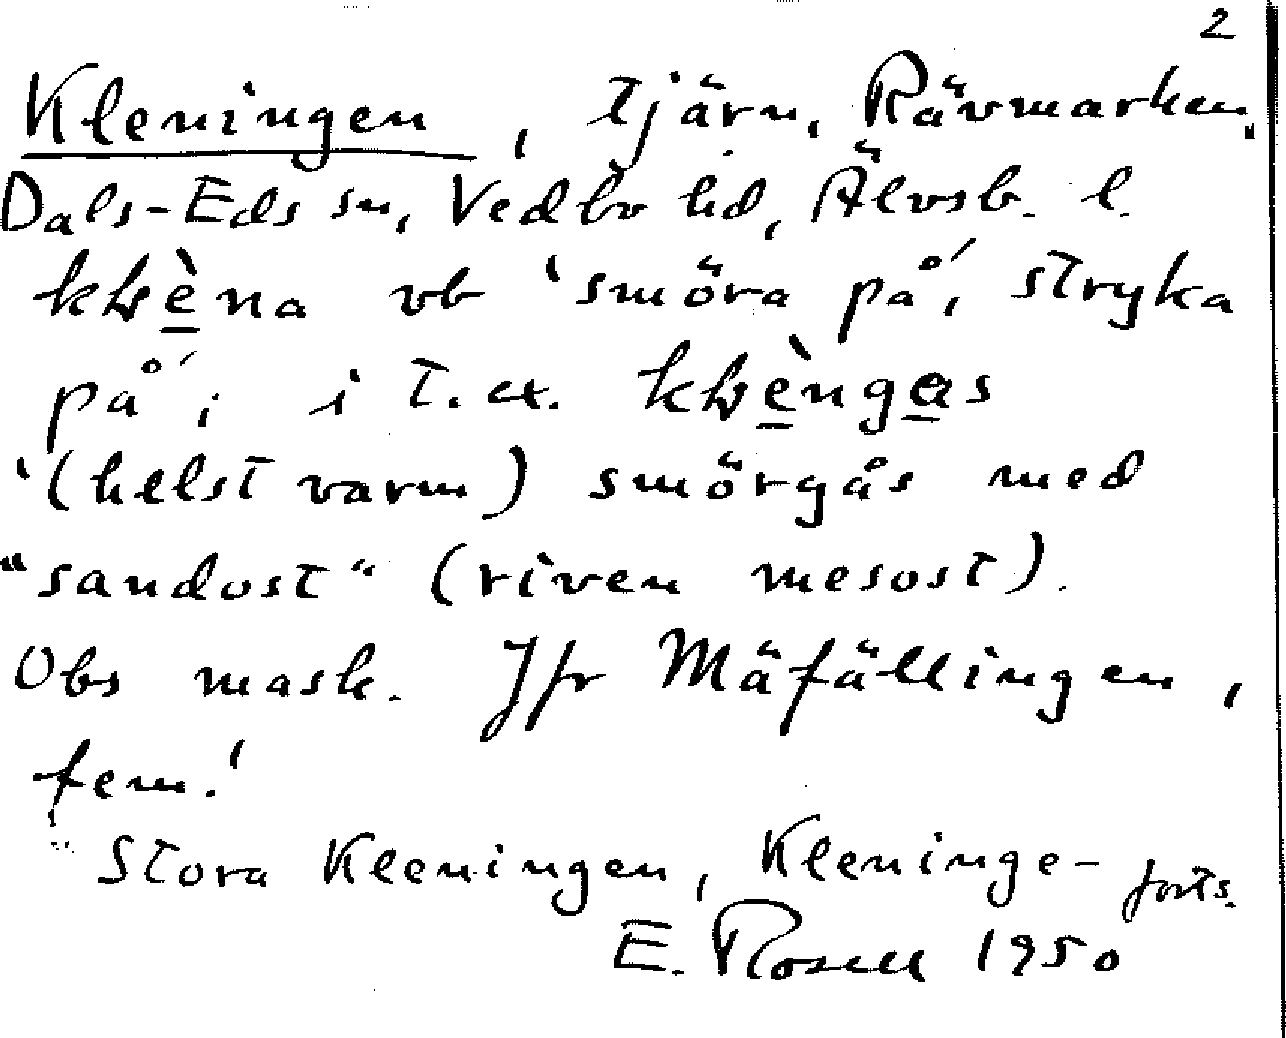 2
Kleningen, tjärn, Rävmarken,
Dals-Eds sn, Vedbo hd, Älvsb. l.
klèna vb 'smöra på', stryka
på', i t. ex. klèngas
'(helst varm) smörgås med
"sandost" (riven mesost).
Obs mask. Jfr Mäfällingen,
fem.!
Stora Kleningen, Kleninge- forts.
E. Rosell 1950